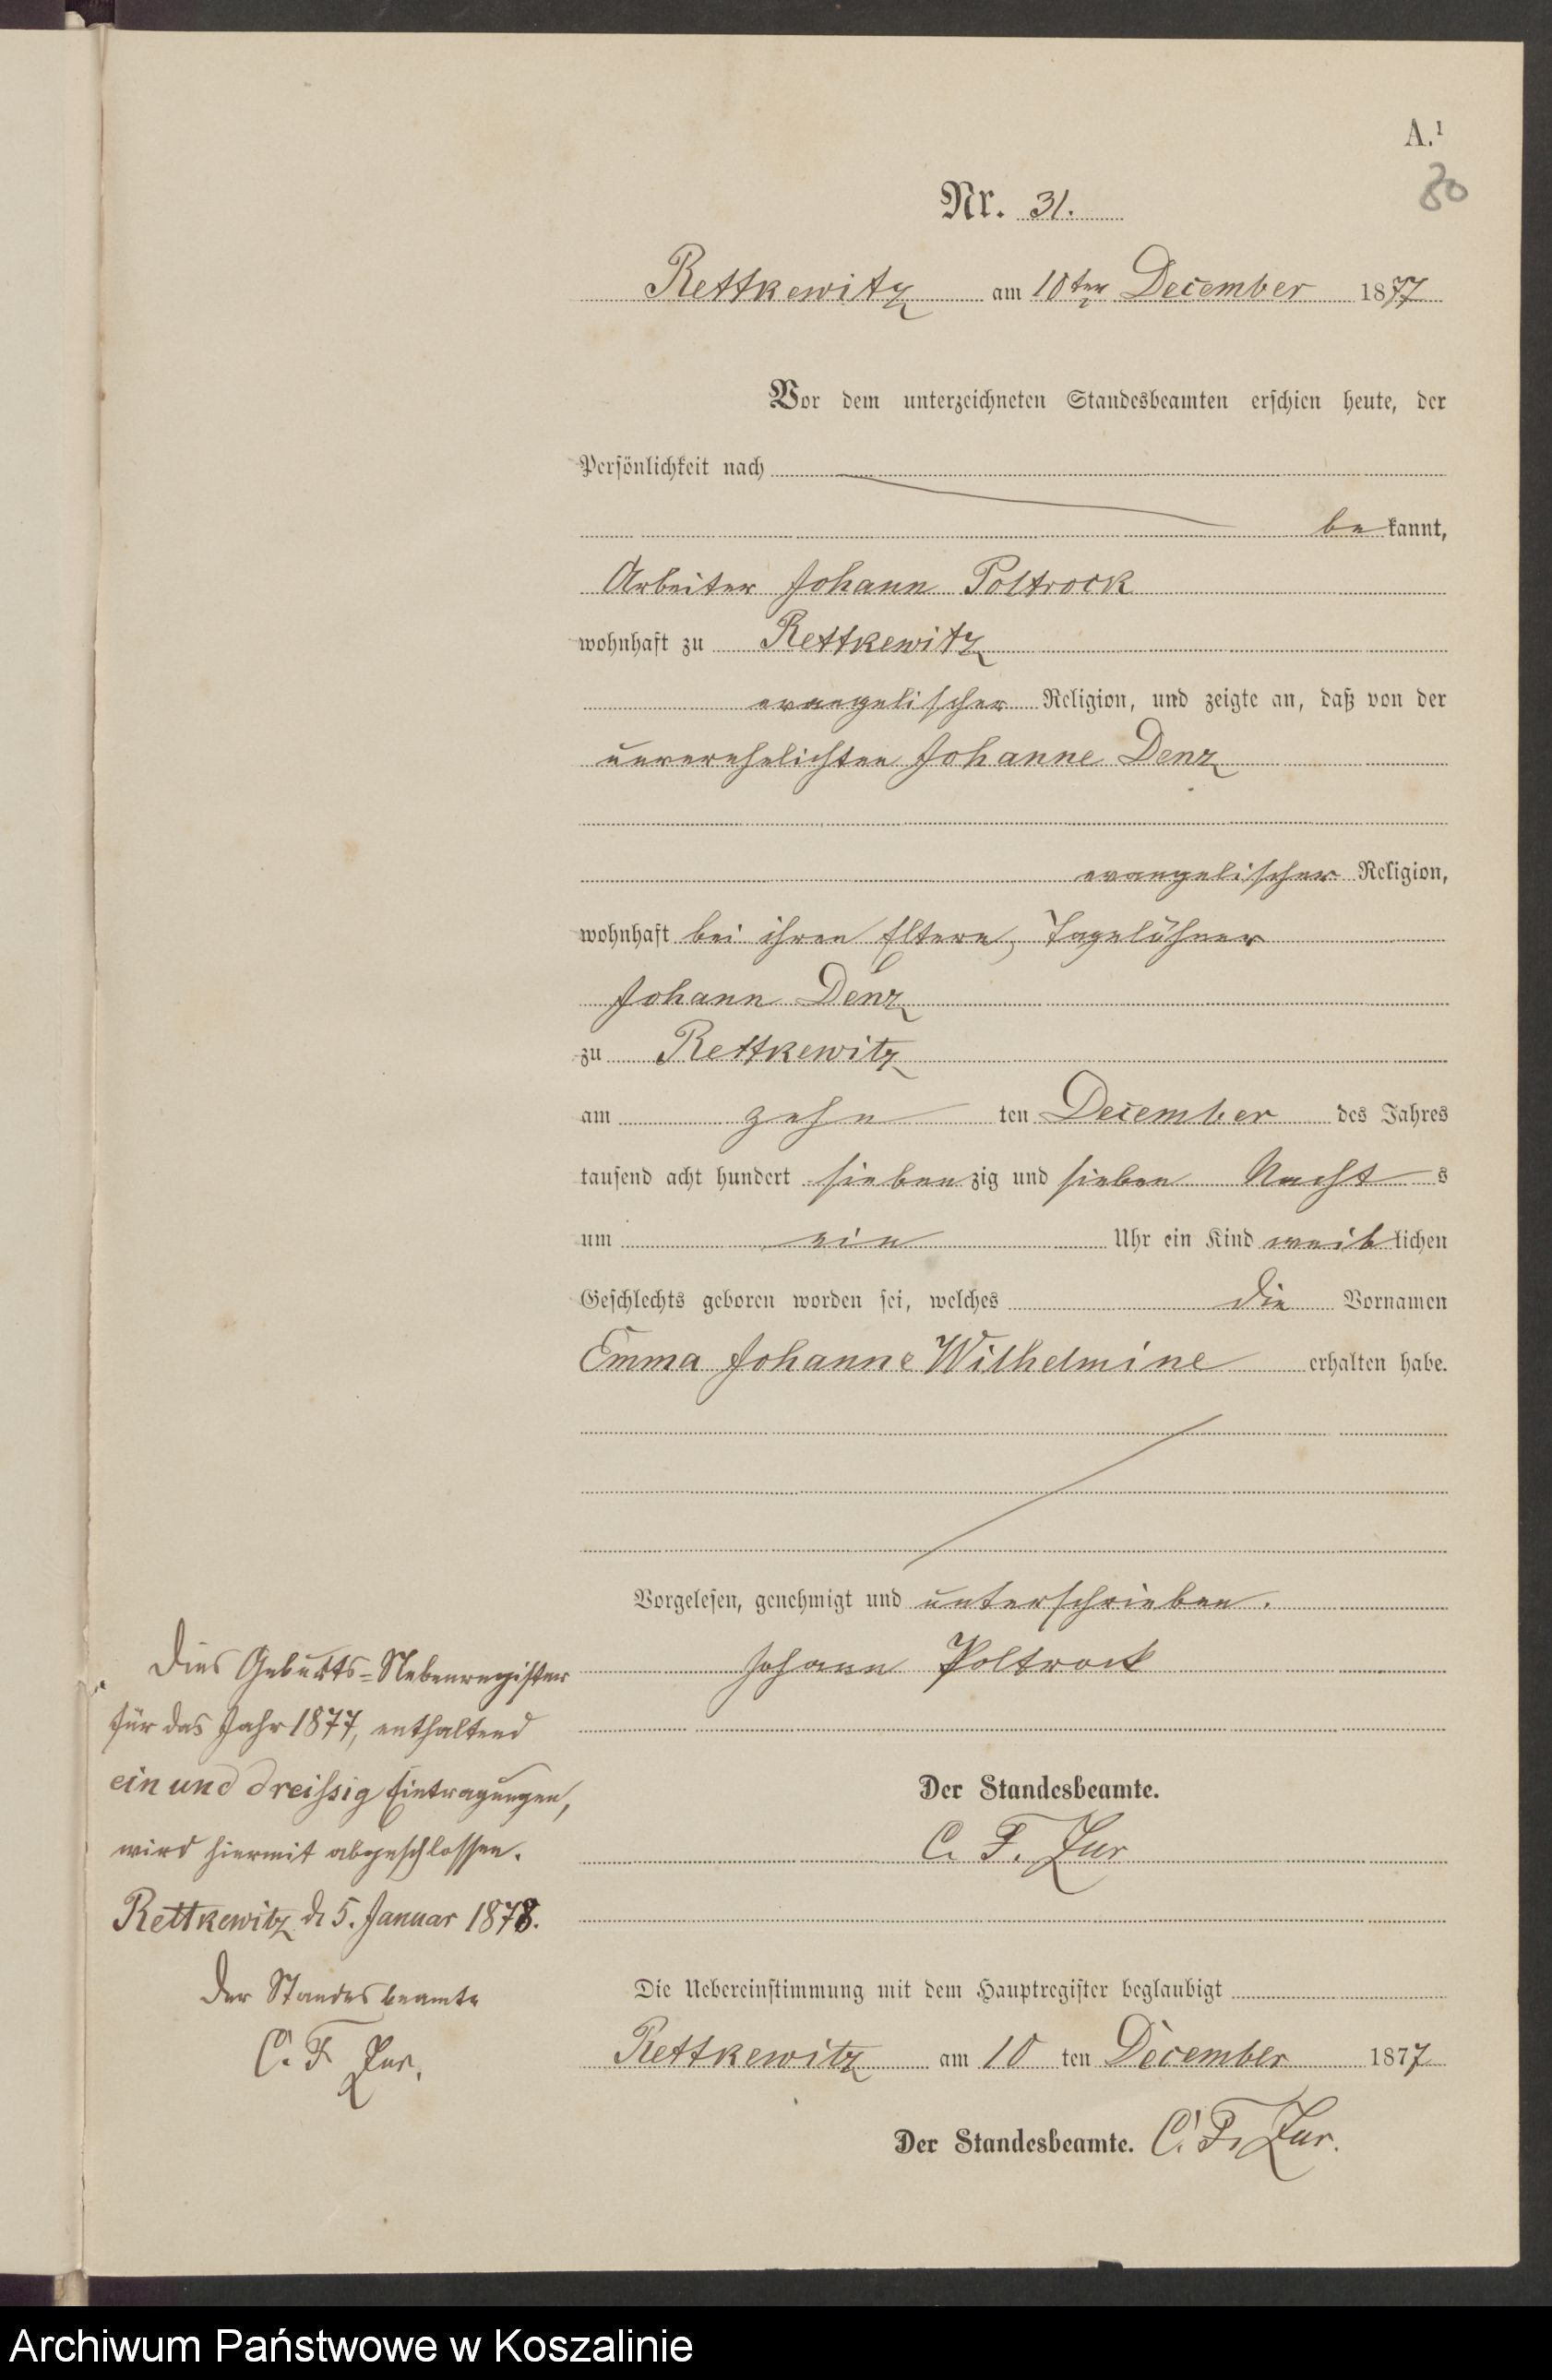 A.¹
80
Nr. 31.
Rettkewitz am 10ten December 1877
Vor dem unterzeichneten Standesbeamten erschien heute, der
Persönlichkeit nach
bekannt,
Arbeiter Johann Poltrock
wohnhaft zu Rettkewitz
evangelischer Religion, und zeigte an, daß von der
unverehelichten Johanne Denz
evangelischer Religion,
wohnhaft bei ihren Eltern, Tagelöhner
Johann Denz
zu Rettkewitz
am zehn ten December des Jahres
tausend acht hundert siebenzig und sieben Nachts
um ein Uhr ein Kind weiblichen
Geschlechts geboren worden sei, welches die Vornamen
Emma Johanne Wilhelmine erhalten habe.
Vorgelesen, genehmigt und unterschrieben.
Johann Poltrock
Der Standesbeamte.
C. F. Zur
Die Uebereinstimmung mit dem Hauptregister beglaubigt
Rettkewitz am 10 ten December 1877
Der Standesbeamte. C. F. Zur.
Dies Geburts-Nebenregister
für das Jahr 1877, enthaltend
ein und dreissig Eintragungen,
wird hiermit abgeschlossen.
Rettkewitz d 5. Januar 1878.
Der Standesbeamte
C. F. Zur.
Archiwum Państwowe w Koszalinie